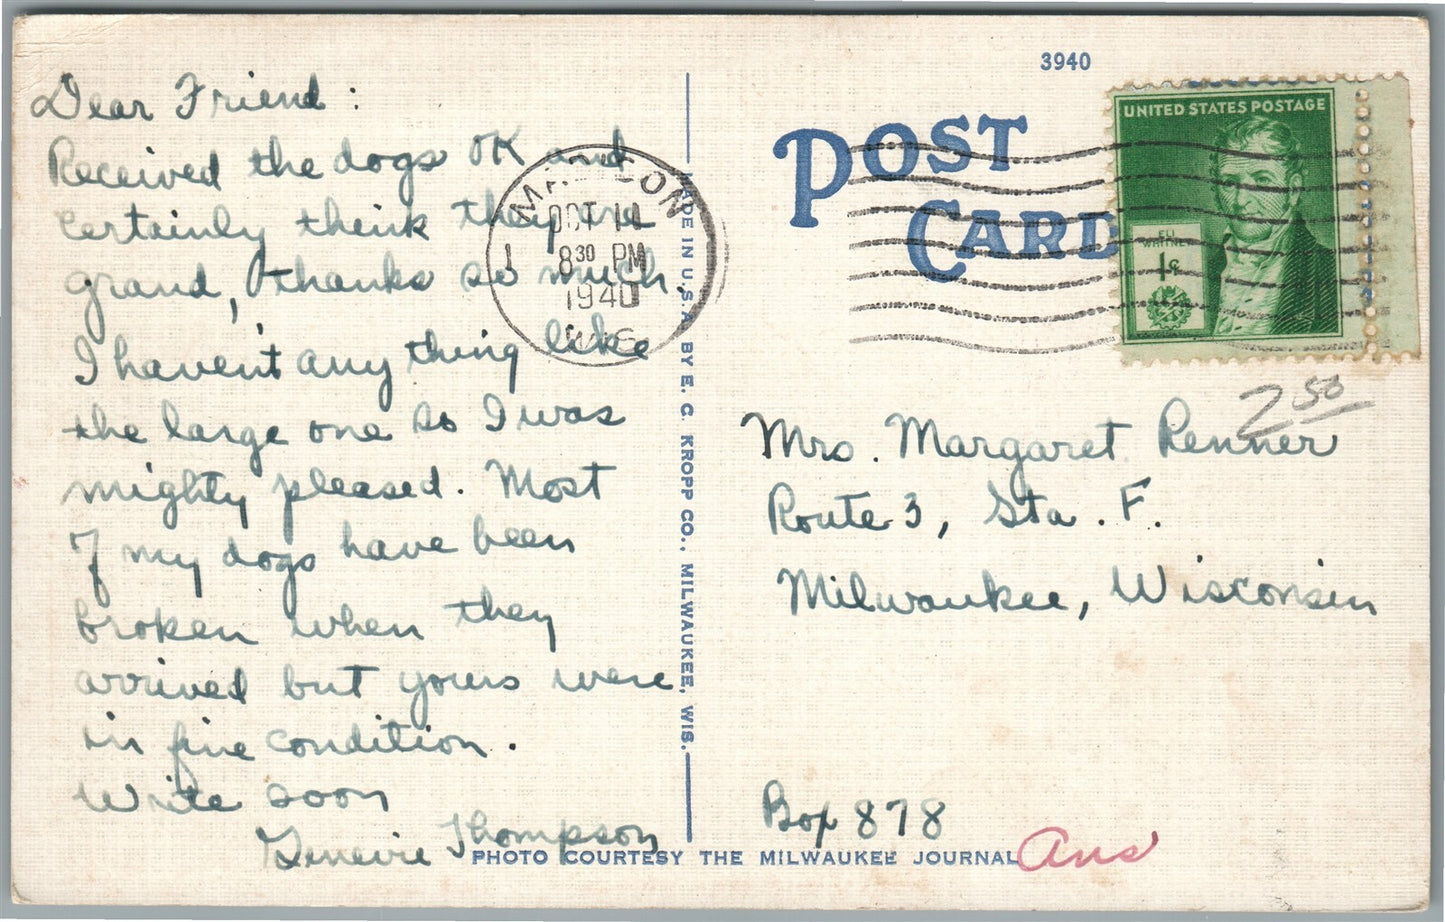 Dear Friend:
Received the dogs OK and
certainly think they are
grand, thanks so much.
I haven't any thing like
the large one so I was
mighty pleased. Most
of my dogs have been
broken when they
arrived but yours were
in fine condition.
Write soon
Genevie Thompson
OCT 10
8 30 PM
1940
1
MADE IN U.S.A. BY E. C. KROPP CO., MILWAUKEE, WIS.
3940
POST
CARD
UNITED STATES POSTAGE
ELI
WHITNEY
1¢
2 50
Mrs. Margaret Renner
Route 3, Sta. F.
Milwaukee, Wisconsin
Box 878
PHOTO COURTESY THE MILWAUKEE JOURNAL
Ans